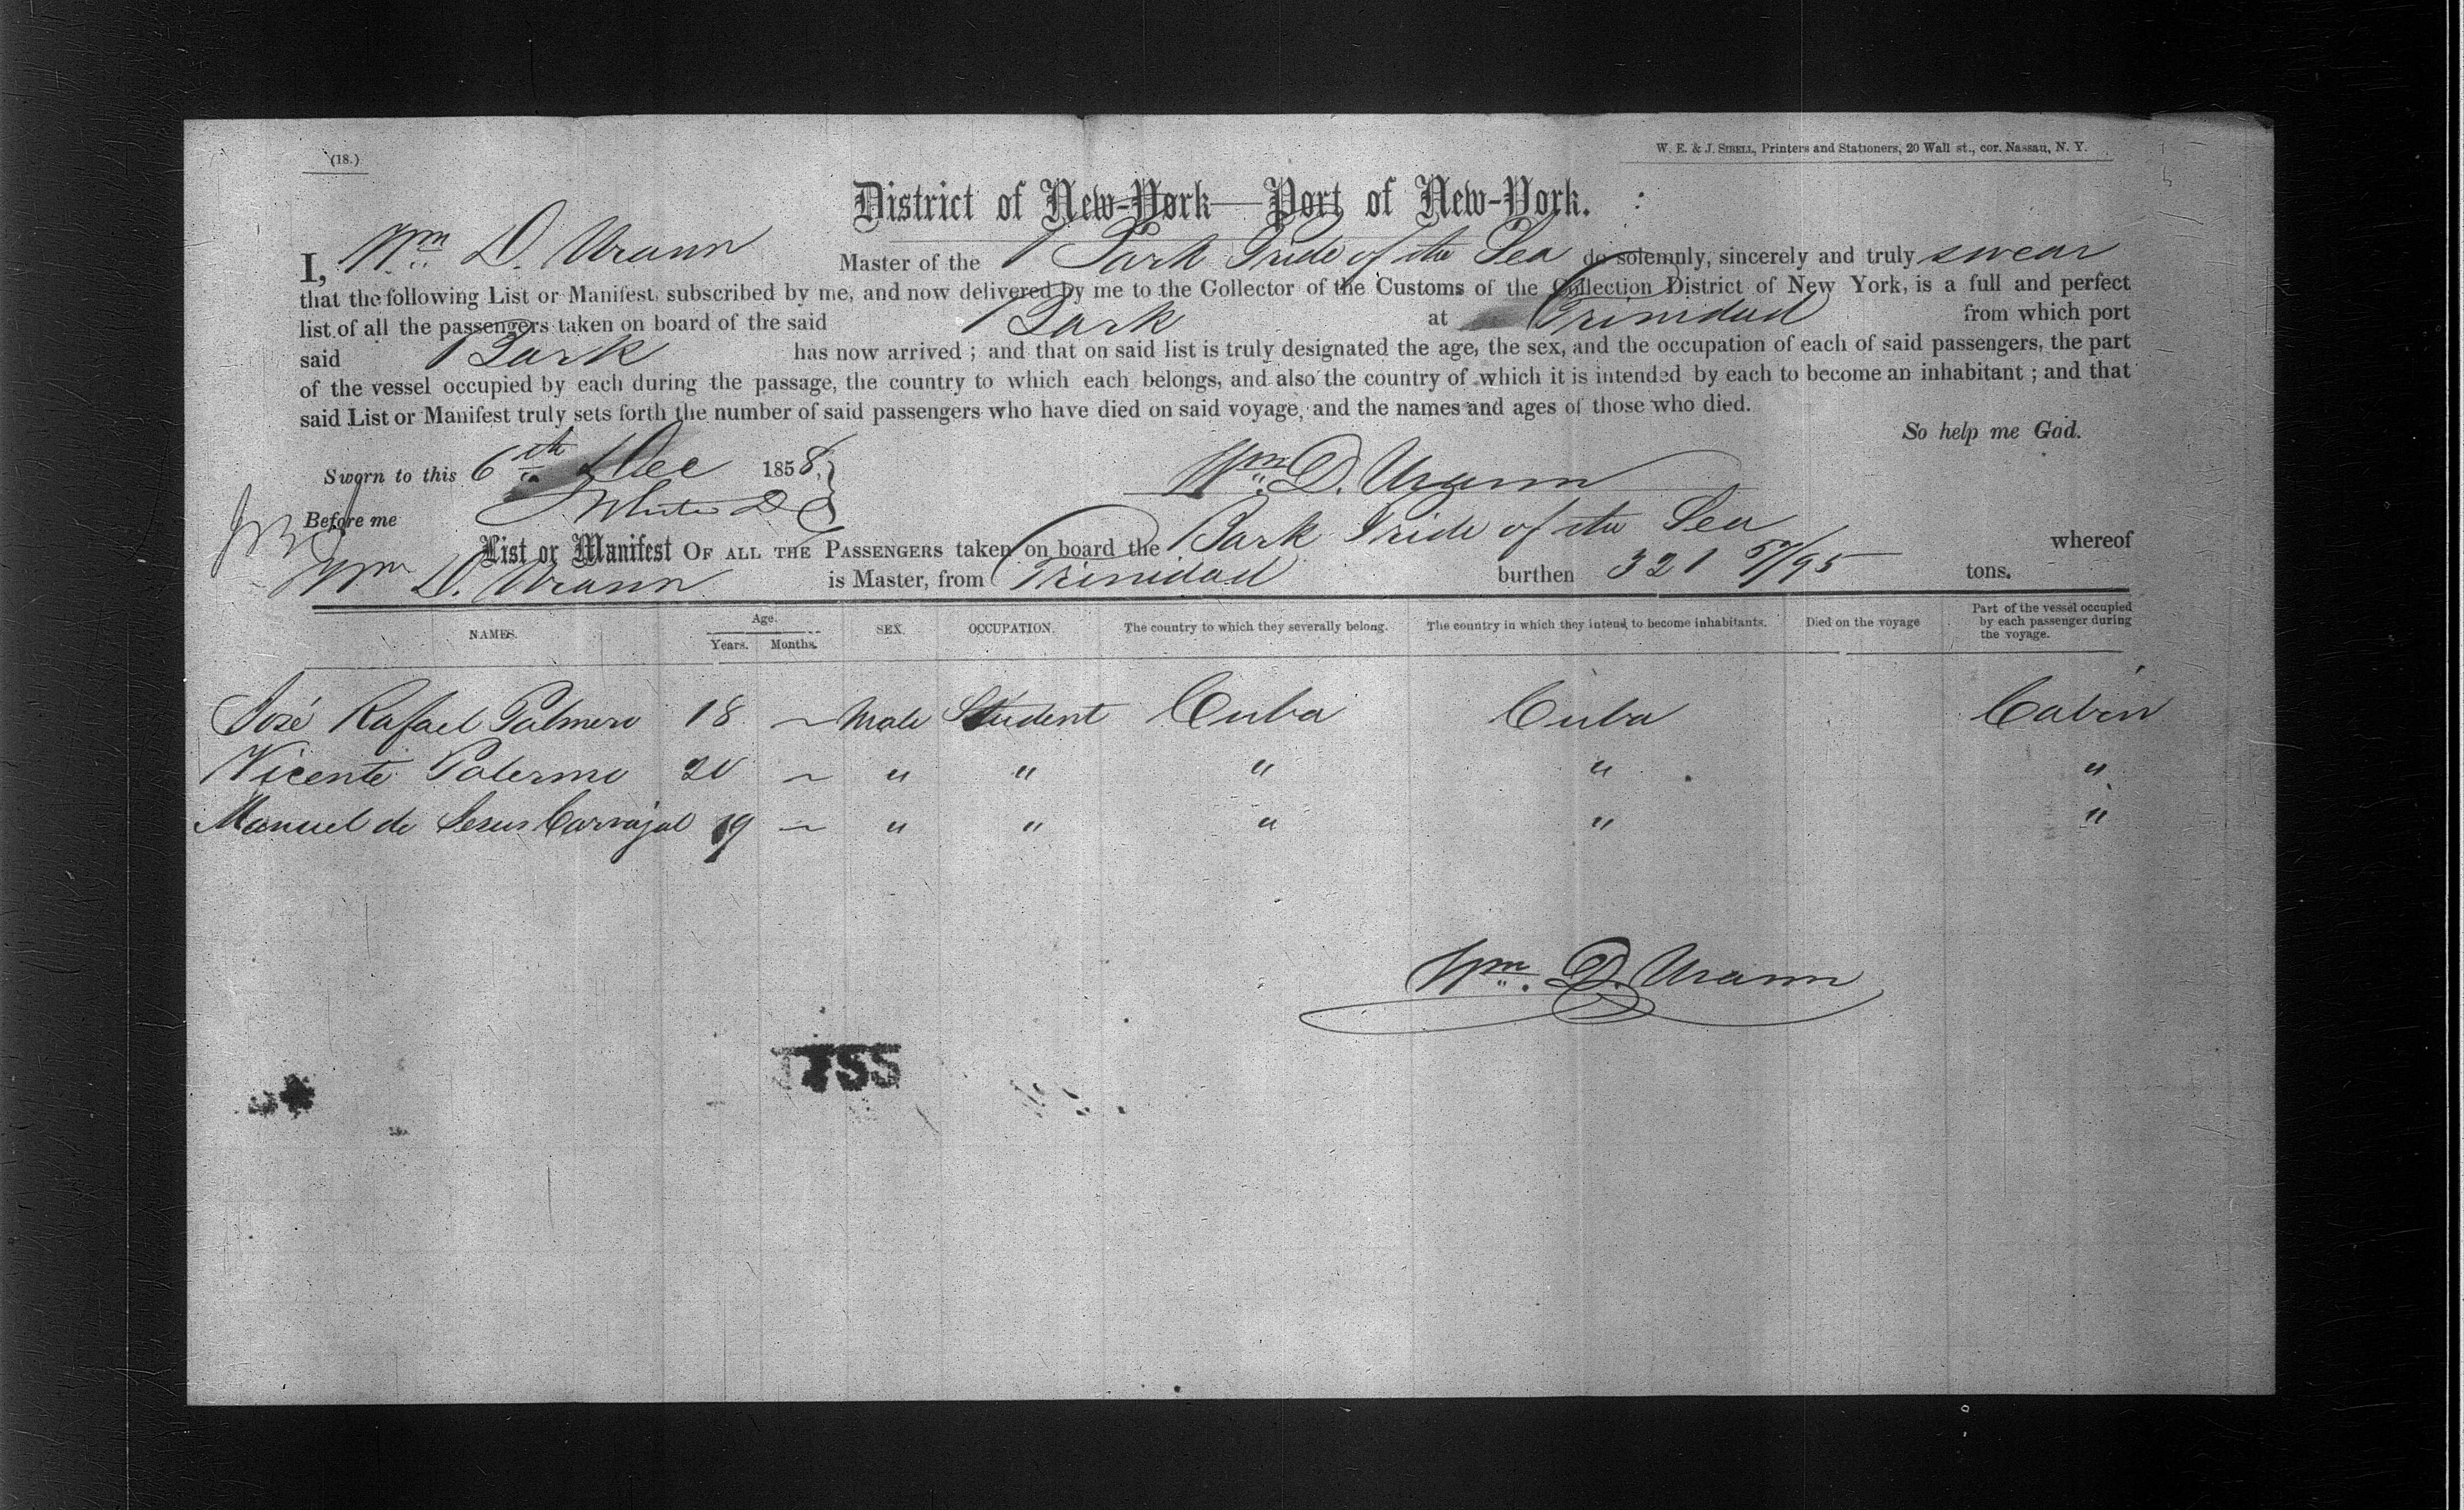 (18.)
W. E. & J. SIBELL, Printers and Stationers, 20 Wall st., cor. Nassau, N. Y.
District of New-York—Port of New-York.
I, Wm D. Urann Master of the Bark Pride of the Sea do solemnly, sincerely and truly swear
that the following List or Manifest, subscribed by me, and now delivered by me to the Collector of the Customs of the Collection District of New York, is a full and perfect
list of all the passengers taken on board of the said Bark at Trinidad from which port
said Bark has now arrived ; and that on said list is truly designated the age, the sex, and the occupation of each of said passengers, the part
of the vessel occupied by each during the passage, the country to which each belongs, and also the country of which it is intended by each to become an inhabitant ; and that
said List or Manifest truly sets forth the number of said passengers who have died on said voyage, and the names and ages of those who died.
So help me God.
Sworn to this 6th Dec 1858,
Wm D. Urann
Before me
List or Manifest OF ALL THE PASSENGERS taken on board the Bark Pride of the Sea whereof
Wm D. Urann is Master, from Trinidad burthen 321 57/95 tons.
NAMES. Age. Years. Months. SEX. OCCUPATION. The country to which they severally belong. The country in which they intend to become inhabitants. Died on the voyage Part of the vessel occupied by each passenger during the voyage.
José Rafael Palmero 18 — Male Student Cuba Cuba Cabin
Vicente Palermo 20 — " " " " "
Manuel de Jesus Carvajal 19 — " " " " "
Wm. D. Urann